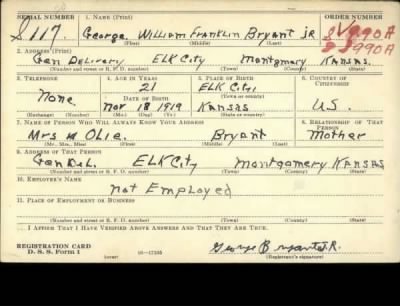 SERIAL NUMBER 1. NAME (Print) ORDER NUMBER
S117. George William Franklin Bryant JR
(First) (Middle) (Last)
990A
2. ADDRESS (Print)
Gen Delivery ELK City Montgomry Kansas.
(Number and street or R. F. D. number) (Town) (County) (State)
3. TELEPHONE 4. AGE IN YEARS 5. PLACE OF BIRTH 6. COUNTRY OF CITIZENSHIP
21 ELK City
None DATE OF BIRTH (Town or county)
Nov 18 1919 Kansas U.S.
(Exchange) (Number) (Mo.) (Day) (Yr.) (State or country)
7. NAME OF PERSON WHO WILL ALWAYS KNOW YOUR ADDRESS 8. RELATIONSHIP OF THAT PERSON
Mrs Olie. Bryant Mother
(Mr., Mrs., Miss) (First) (Middle) (Last)
9. ADDRESS OF THAT PERSON
Gen Del. ELK City Montgomery Kansas
(Number and street or R. F. D. number) (Town) (County) (State)
10. EMPLOYER'S NAME
Not Employed
11. PLACE OF EMPLOYMENT OR BUSINESS
(Number and street or R. F. D. number) (Town) (County) (State)
I AFFIRM THAT I HAVE VERIFIED ABOVE ANSWERS AND THAT THEY ARE TRUE.
REGISTRATION CARD
D. S. S. Form 1 (over) 16—17105
(Registrant's signature)